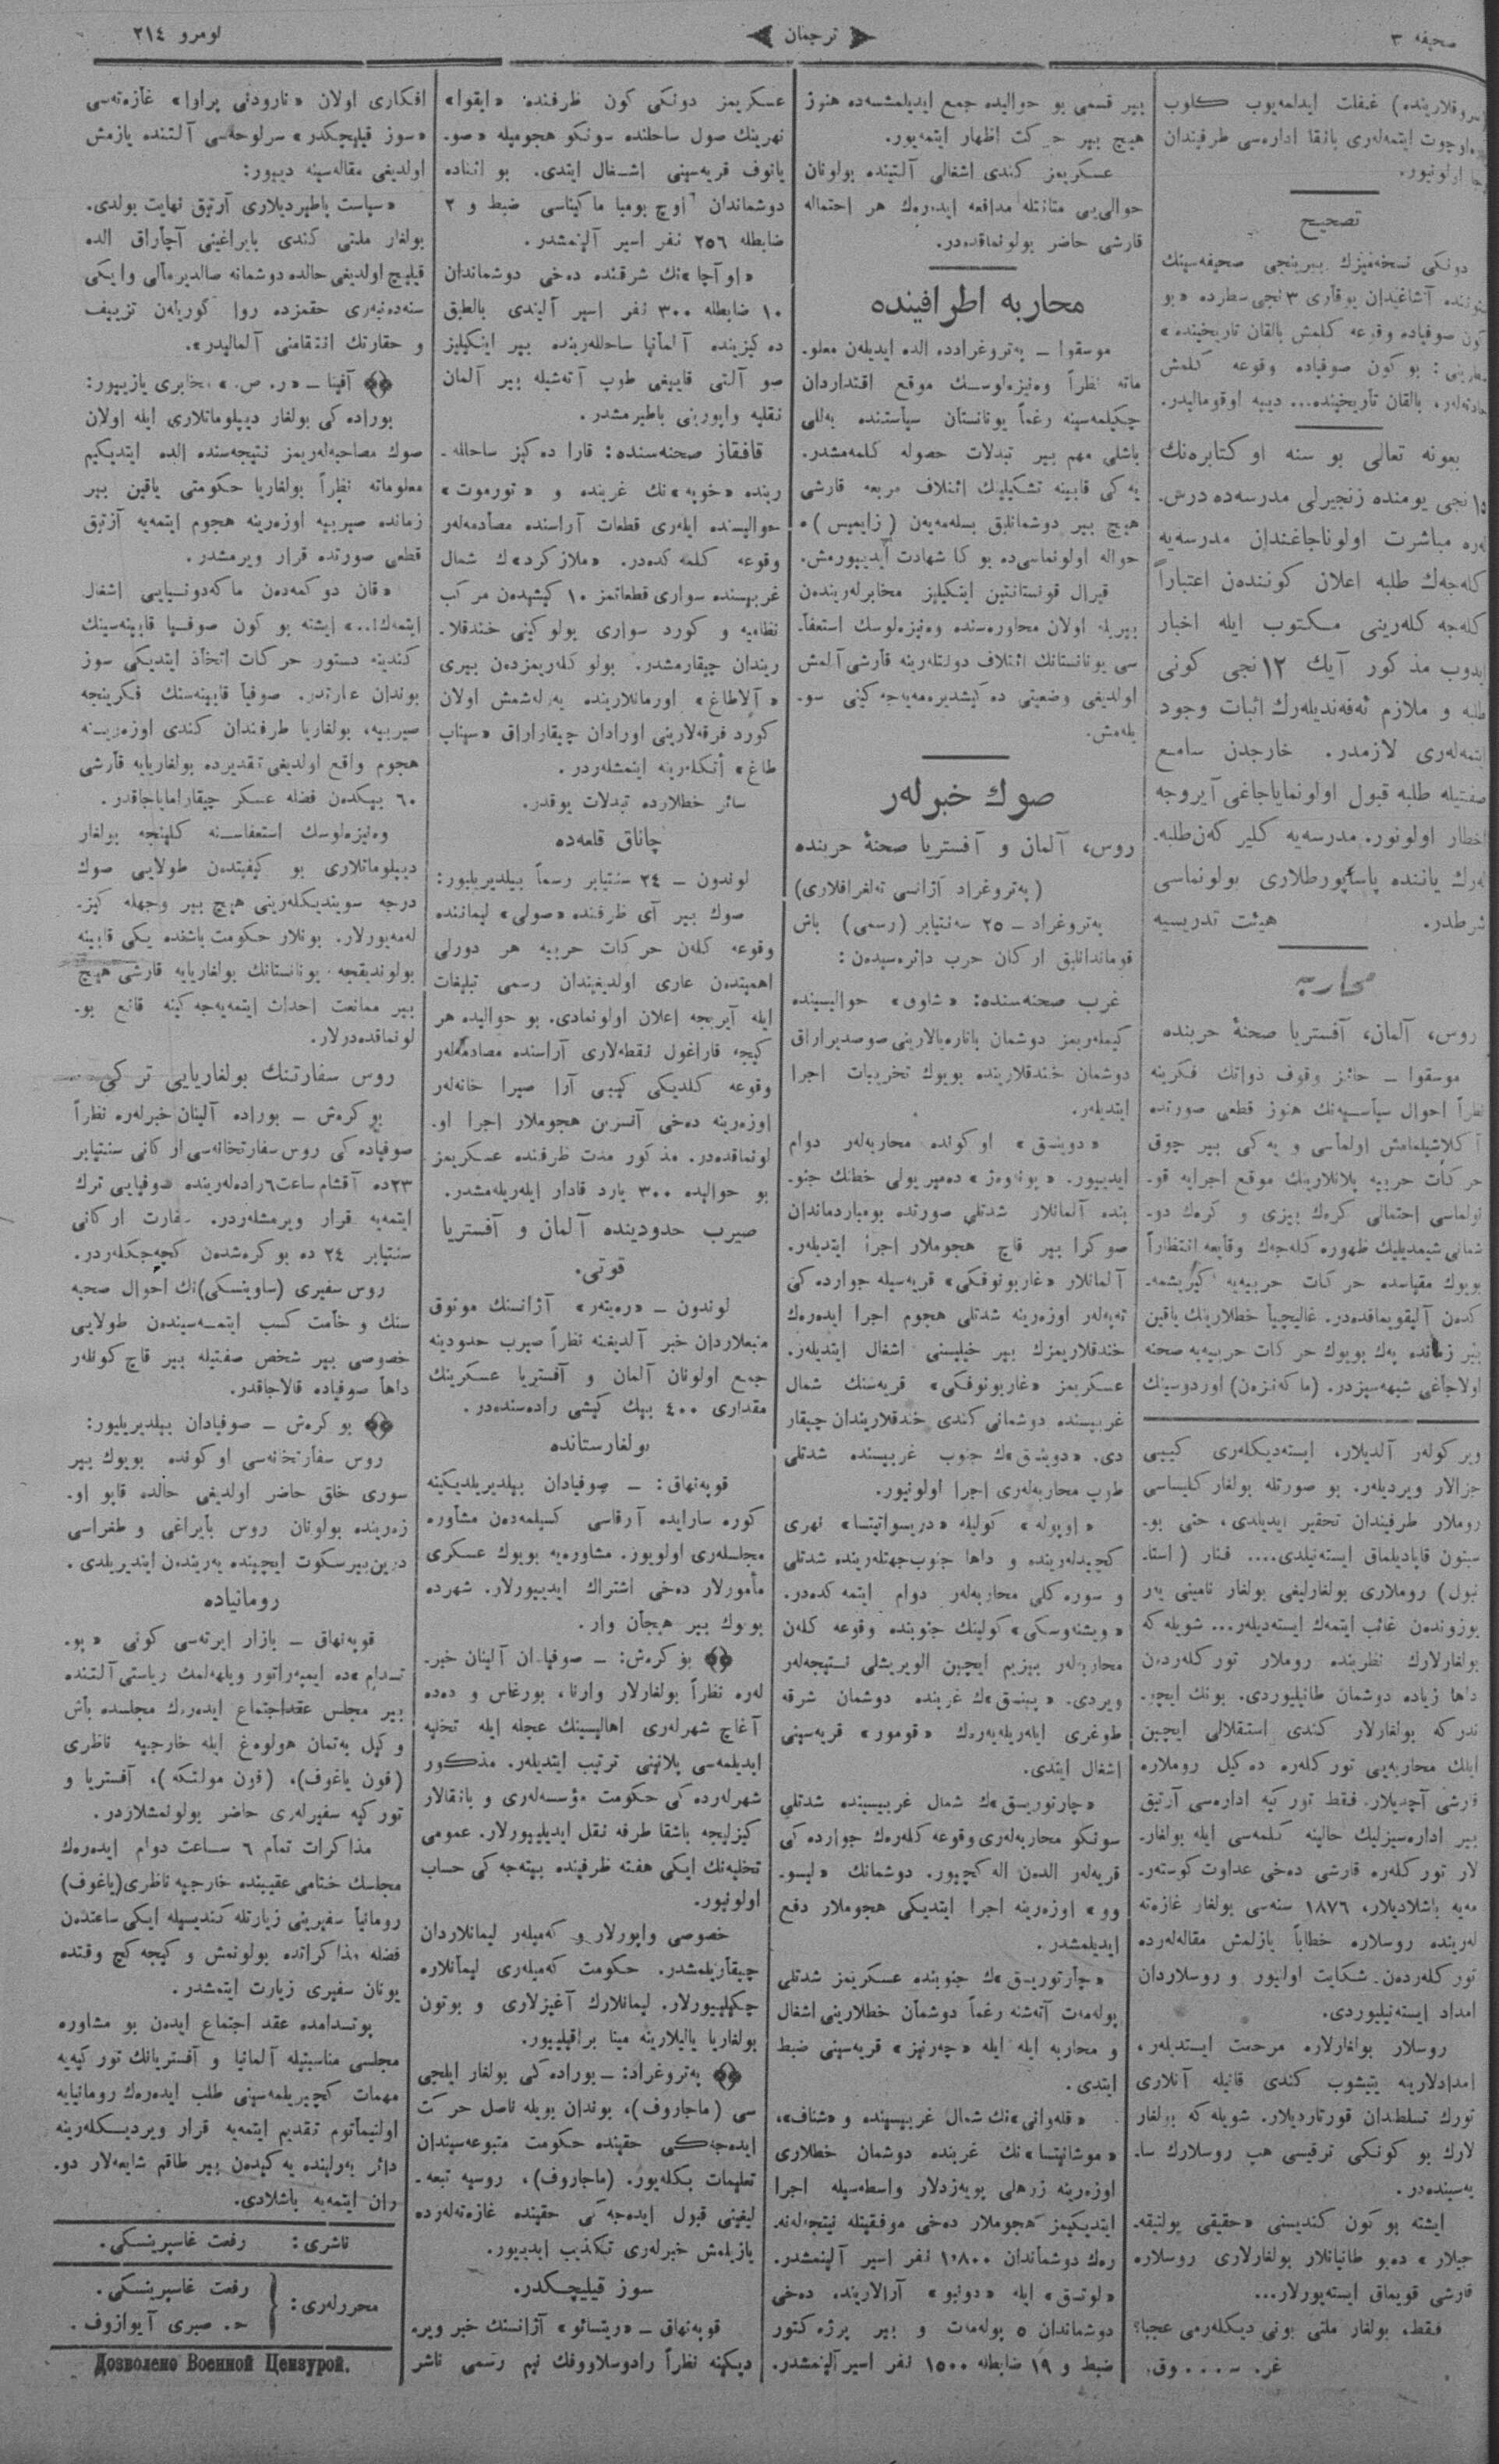 صحیفه ٣
ترجمان
نومرو ٢١٤
سروقلارینده) غفلت ایدلمه‌یوب كلوب
اوچوت ایتمه‌لری بانقا اداره‌سی طرفیندان
رجا اولونیور.
تصحیح
دونكی نسخه‌میزك بیرینجی صحیفه‌سینك
آشاغیدان یوقاری ٣ نجی سطرده «بو
كون صوفیاده وقوعه كلمش بالقان تاریخینده»
بو كون صوفیاده وقوعه كلمش
حادثه‌لر، بالقان تأریخینده... دییه اوقومالیدر.
بعونه تعالی بو سنه اوكتابره‌نك
١٥ نجی یومنده زنجیرلی مدرسه‌ده درس‌
لره مباشرت اولوناجاغندان مدرسه‌یه
كله‌جه‌ك طلبه اعلان كونندن اعتباراً
كله‌جه‌كلرینی مكتوب ایله اخبار
ایدوب مذكور آیك ١٢ نجی كونی
طلبه و ملازم ئه‌فه‌ندیلرك اثبات وجود
ایتمه‌لری لازمدر. خارجدن سامع
صفتیله طلبه قبول اولونمایاجاغی آیروجه
اخطار اولونور. مدرسه‌یه كلیر كه‌ن طلبه‌
لرك یاننده پاساپورطلاری بولونماسی
شرطدر. هیئت تدریسیه
محاربه
روس، آلمان، آفستریا صحنهٔ حربنده
موسقوا ــ حائز وقوف ذواتك فكرینه
نظراً احوال سیاسیه‌نك هنوز قطعی صورتده
آكلاشیلمامش اولماسی و یه‌كی بیر چوق
حركات حربیه پلانلارینك موقع اجرایه قو-
نولماسی احتمالی كرك بیزی و كرك دو-
شمانی شیمدیلیك ظهوره كله‌جه‌ك وقایعه انتظاراً
بویوك مقیاسده حركات حربیه‌یه كیریشمه-
كدن آلیقویماقده‌در. غالیچیا خطلارینك یاقین
بیر زمانده یه‌ك بویوك حركات حربیه‌یه صحنه
اولاجاغی شبهه‌سیزدر. (ماكه‌نزه‌ن) اوردوسینك
ویركولر آلدیلار، ایسته‌دیكلری كیبی
جزالار ویردیلر. بو صورتله بولغار كلیساسی
روملار طرفیندان تحقیر ایدیلدی، حتی بو-
سبتون قاپادیلماق ایسته‌نیلدی.... فنار (استا-
نبول) روملاری بولغارلیغی بولغار نامینی یه‌ر
یوزوندن غائب ایتمه‌ك ایسته‌دیلر... شویله كه
بولغارلارك نظرینده روملار توركلردن
داها زیاده دوشمان طانیلیوردی. بونك ایچی-
ندر كه بولغارلار كندی استقلالی ایچین
ایلك محاربه‌یی توركلره ده‌كیل روملاره
قارشی آچدیلار. فقط توركیه اداره‌سی آرتیق
بیر اداره‌سیزلیك حالینه كلمه‌سی ایله بولغار-
لار توركلره قارشی ده‌خی عداوت كوسته‌ر-
مه‌یه باشلادیلار، ١٨٧٦ سنه‌سی بولغار غازه‌ته-
لرینده روسلاره خطاباً یازلمش مقاله‌لرده
توركلردن شكایت اولنیور و روسلاردان
امداد ایسته‌نیلیوردی.
روسلار بولغارلاره مرحمت ایتدیلر،
امدادلارینه یتیشوب كندی قانیله آنلاری
تورك تسلطدان قورتاردیلار. شویله كه بولغار
لارك بو كونكی ترقیسی هپ روسلارك سا-
یه‌سینده‌در.
ایشته بو كون كندیسنی «حقیقی پولتیقه-
جیلار» ده‌یو طانیانلار بولغارلاری روسلاره
قارشی قویماق ایسته‌یورلار...
فقط، بولغار ملتی بونی دیكلرمی عجبا؟
بیر قسمی بو حوالیده جمع ایدیلمشسه‌ده هنوز
هیچ بیر حركت اظهار ایتمه‌یور.
عسكریمز كندی اشغالی آلتینده بولونان
حوالی‌یی متانتله مدافعه ایده‌رك هر احتماله
قارشی حاضر بولونماقده‌در.
محاربه اطرافینده
موسقوا ــ په‌تروغرادده الده ایدیلن معلو-
ماته نظراً وه‌نیزه‌لوسك موقع اقتداردان
چكیلمه‌سینه رغماً یونانستان سیاستنده به‌للی
باشلی مهم بیر تبدلات حصوله كلمه‌مشدر.
یه‌كی قابینه تشكیلیك ائتلاف مربعه قارشی
هیچ بیر دوشمانلیق بسله‌مه‌یه‌ن (زایمیس) ه
حواله اولونماسی‌ده بوكا شهادت ایدییورمش.
قیرال قونستانتین اینكیلیز مخابرلریندن
بیریله اولان محاوره‌سنده وه‌نیزه‌لوسك استعفا-
سی یونانستانك ائتلاف دولتلرینه قارشی آلمش
اولدیغی وضعیتی ده‌كیشدیره‌مه‌یه‌جه‌كینی سو-
یله‌مش.
صوك خبرلر
روس، آلمان و آفستریا صحنهٔ حربنده
(په‌تروغراد آژانسی ته‌لغرافلاری)
په‌تروغراد ــ ٢٥ سه‌نتیابر (رسمی) باش
قومانداانلیق اركان حرب دائره‌سیدن:
غرب صحنه‌سنده: «شاوق» حوالیسینده
كیمه‌لریمز دوشمان بانارەیالارینی صوصدیراراق
دوشمان خندقلارینده بویوك تخریبات اجرا
ایتدیلر.
«دوینسق» اوكونده محاربه‌لر دوام
ایدییور. «پونه‌وه‌ژ» ده‌میر یولی خطنك جنو-
بنده آلمانلار شدتلی صورتده بومباردماندان
صوكرا بیر قاچ هجوملار اجرا ایتدیلر.
آلمانلار «غاربونوفكی» قریه‌سیله جوارده‌كی
ته‌په‌لر اوزه‌رینه شدتلی هجوم اجرا ایده‌رك
خندقلاریمزك بیر خیلیسنی اشغال ایتدیلر.
عسكریمز «غاربونوفكی» قریه‌سنك شمال
غربیسنده دوشمانی كندی خندقلاریندان چیقار
دی. «دوینسق»ك جنوب غربیسنده شدتلی
طوپ محاربه‌لری اجرا اولونیور.
«اوبوله» كولیله «دریسواتیتسا» نهری
كچیدلرینده و داها جنوب جهتلرینده شدتلی
و سوره‌كلی محاربه‌لر دوام ایتمه‌كده‌در.
«ویشنه‌وسكی» كولینك جنوبنده وقوعه كلن
محاربه‌لر بیزیم ایچین الویریشلی نتیجه‌لر
ویردی. «پینسق»ك غربنده دوشمان شرقه
طوغری ایلریله‌یه‌رك «قومور» قریه‌سینی
اشغال ایتدی.
«چارتوریسق»ك شمال غربیسینده شدتلی
سونكو محاربه‌لری وقوعه كله‌رك جوارده‌كی
قریه‌لر الدن اله كچیور. دوشمانك «لیسو-
وو» اوزه‌رینه اجرا ایتدیكی هجوملار دفع
ایدیلمشدر.
«چارتوریسق»ك جنوبنده عسكریمز شدتلی
پوله‌مه‌ت آته‌شنه رغماً دوشمان خطلارینی اشغال
و محاربه ایله ایله «چه‌رنیز» قریه‌سینی ضبط
ایتدی.
«قله‌وانی»نك شمال غربیسینده و «شناف»،
«موشانیتسا»نك غربنده دوشمان خطلاری
اوزه‌رینه زرهلی پویه‌زدلار واسطه‌سیله اجرا
ایتدیكیمز هجوملار ده‌خی موفقیتله نیتجه‌لنه-
رك دوشماندان ١٨٠٠ نفر اسیر آلینمشدر.
«لوتسق» ایله «دوبنو» آرالارینده ده‌خی
دوشماندان ٥ پوله‌مه‌ت و بیر پرژه‌كتور
ضبط و ١٩ ضابطله ١٥٠٠ نفر اسیر آلینمشدر.
عسكریمز دونكی كون ظرفنده «ایقوا»
نهرینك صول ساحلنده سونكو هجومیله «صو-
یانوف قریه‌سینی اشغال ایتدی. بو اثناده
دوشماندان اوچ بومبا ماكیناسی ضبط و ٢
ضابطله ٢٥٦ نفر اسیر آلینمشدر.
«اوآچا»نك شرقنده ده‌خی دوشماندان
١٠ ضابطله ٣٠٠ نفر اسیر آلیندی بالطیق
ده‌كیزینده آلمانیا ساحللرینده بیر اینكیلیز
صو آلتی قاییغی طوپ آته‌شیله بیر آلمان
نقلیه واپورینی باطیرمشدر.
قافقاز صحنه‌سنده: قارا ده‌كیز ساحلله-
رینده «خوپه»نك غربنده و «تورموت»
حوالیسنده ایلری قطعات آراسنده مصادمه‌لر
وقوعه كلمه‌كده‌در. «ملازكرد»ك شمال
غربیسنده سواری قطعاتمز ١٠ كیشیدن مركب
نظامیه و كورد سواری بولوكینی خندقلا-
ریندان چیقارمشدر. بولوكلریمزدن بیری
«آلاطاغ» اورمانلارینده یه‌رله‌شمش اولان
كورد فرقه‌لارینی اورادان چیقاراراق «سیپاب
طاغ» أتكلرینه ایتمشلردر.
سائر خطلارده تبدلات یوقدر.
چاناق قلعه‌ده
لوندون ــ ٢٤ سنتیابر رسماً بیلدیریلیور:
صوك بیر آی ظرفنده «صولی» لیماننده
وقوعه كلن حركات حربیه هر دورلی
اهمیتدن عاری اولدیغیندان رسمی تبلیغات
ایله آیریجه اعلان اولونمادی. بو حوالیده هر
كیجه قاراغول نقطه‌لاری آراسنده مصادمه‌لر
وقوعه كلدیكی كیبی آرا صیرا خانه‌لر
اوزه‌رینه ده‌خی آنسزین هجوملار اجرا او-
لونماقده‌در. مذكور مدت ظرفنده عسكریمز
بو حوالیده ٣٠٠ یارد قادار ایلریله‌مشدر.
صیرب حدودینده آلمان و آفستریا
قوتی.
لوندون ــ «ره‌یتر» آژانسنك موثوق
منبعلاردان خبر آلدیغنه نظراً صیرب حدودینه
جمع اولونان آلمان و آفستریا عسكرینك
مقداری ٤٠٠ بیك كیشی راده‌سنده‌در.
بولغارستانده
قوپه‌نهاق: ــ صوفیادان بیلدیریلدیكینه
كوره سارایده آرقاسی كسیلمه‌دن مشاوره
مجلسلری اولویور. مشاوره‌یه بویوك عسكری
مأمورلار ده‌خی اشتراك ایدییورلار. شهرده
بویوك بیر هیجان وار.
بوكرش: ــ صوفیادان آلینان خبر-
لره نظراً بولغارلار وارنا، بورغاس و ده‌ده
آغاچ شهرلری اهالیسینك عجله ایله تخلیه
ایدیلمه‌سی پلانینی ترتیب ایتدیلر. مذكور
شهرلرده‌كی حكومت مؤسسه‌لری و بانقالار
كیزلیجه باشقا طرفه نقل ایدیلییورلار. عمومی
تخلیه‌نك ایكی هفته ظرفینده بیته‌جه‌كی حساب
اولونیور.
خصوصی واپورلار و كه‌میلر لیمانلاردان
چیقاریلمشدر. حكومت كه‌میلری لیمانلاره
چكیلییورلار. لیمانلارك آغیزلاری و بوتون
بولغاریا یالیلارینه مینا براقیلییور.
په‌تروغراد: ــ بوراده‌كی بولغار ایلچی
سی (ماجاروف)، بوندان بویله ناصل حركت
ایده‌جه‌كی حقینده حكومت متبوعه‌سیندان
تعلیمات بكله‌یور. (ماجاروف)، روسیه تبعه-
لیغینی قبول ایده‌جه‌كی حقینده غازه‌ته‌لرده
یازیلمش خبرلری تكذیب ایدییور.
سوز قیلیچكدر.
قوپه‌نهاق ــ «ریتسائو» آژانسنك خبر ویر-
دیكینه نظراً رادوسلاووفك نیم رسمی ناشر
افكاری اولان «نارودنی پراوا» غازه‌ته‌سی
«سوز قیلیچكدر» سرلوحه‌سی آلتنده یازمش
اولدیغی مقاله‌سینه دییور:
«سیاست باطیردیلاری آرتیق نهایت بولدی.
بولغار ملتی كندی بایراغینی آچاراق الده
قیلیچ اولدیغی حالده دوشمانه صالدیرمالی وایكی
سنه‌دنبری حقمزده روا كوریلن تزییف
و حقارتك انتقامنی آلمالیدر».
آفینا ــ «ر. ص.» مخابری یازییور:
بوراده‌كی بولغار دیپلوماتلاری ایله اولان
صوك مصاحبه‌لریمز نتیجه‌سنده الده ایتدیكیم
معلوماته نظراً بولغاریا حكومتی یاقین بیر
زمانده صیربیه اوزه‌رینه هجوم ایتمه‌یه آرتیق
قطعی صورتده قرار ویرمشدر.
«قان دوكمه‌دن ماكه‌دونیایی اشغال
ایتمه‌ك!..» ایشته بو كون صوفیا قابینه‌سینك
كندینه دستور حركات اتخاذ ایتدیكی سوز
بوندان عبارتدر. صوفیا قابینه‌سنك فكرینجه
صیربیه، بولغاریا طرفندان كندی اوزه‌رینه
هجوم واقع اولدیغی تقدیرده بولغاریایه قارشی
٦٠ بیكدن فضله عسكر چیقارامایاجاقدر.
وه‌نیزه‌لوسك استعفاسنه كلینجه بولغار
دیپلوماتلاری بو كیفیتدن طولایی صوك
درجه سویندیكلرینی هیچ بیر وجهله كیز-
له‌مه‌یورلار. بونلار حكومت باشنده یكی قابینه
بولوندیقجه یونانستانك بولغاریایه قارشی هیچ
بیر ممانعت احداث ایتمه‌یه‌جه‌كینه قانع بو-
لونماقده‌درلار.
روس سفارتنك بولغاریایی تركی
بوكرش ــ بوراده آلینان خبرلره نظراً
صوفیاده‌كی روس سفارتخانه‌سی اركانی سنتیابر
٢٣ده آقشام ساعت ٦ راده‌لرینده صوفیایی ترك
ایتمه‌یه قرار ویرمشلردر. سفارت اركانی
سنتیابر ٢٤ ده بوكرشدن كچه‌جكلردر.
روس سفیری (ساوینسكی)نك احوال صحیه
سنك وخامت كسب ایتمه‌سیندن طولایی
خصوصی بیر شخص صفتیله بیر قاچ كونلر
داها صوفیاده قالاجاقدر.
بوكرش ــ صوفیادان بیلدیریلیور:
روس سفارتخانه‌سی اوكونده بویوك بیر
سوری خلق حاضر اولدیغی حالده قاپو او-
زه‌رینده بولونان روس بایراغی و طغراسی
درین بیر سكوت ایچینده یه‌ریندن ایندیریلدی.
رومانیاده
قوپه‌نهاق ــ بازار ایرته‌سی كونی «پو-
تسدام»ده ایمپه‌راتور ویلهه‌لمك ریاستی آلتنده
بیر مجلس عقد اجتماع ایده‌رك مجلسده باش
وكیل به‌تمان هولوه‌غ ایله خارجیه ناظری
(فون یاغوف)، (فون مولتكه)، آفستریا و
توركیه سفیرلری حاضر بولونمشلاردر.
مذاكرات تمام ٦ ساعت دوام ایده‌رك
مجلسك ختامی عقیبنده خارجیه ناظری (یاغوف)
رومانیا سفیرینی زیارتله كندیسیله ایكی ساعتدن
فضله مذاكراتده بولونمش و كیجه كچ وقتده
یونان سفیری زیارت ایتمشدر.
پوتسدامده عقد اجتماع ایدن بو مشاوره
مجلسی مناسبتیله آلمانیا و آفستریانك توركیه‌یه
مهمات كچیریلمه‌سینی طلب ایده‌رك رومانیایه
اولتیماتوم تقدیم ایتمه‌یه قرار ویردیكلرینه
دائر به‌رلینده یه‌كیدن بیر طاقم شایعه‌لار دو-
ران ایتمه‌یه باشلادی.
ناشری: رفعت غاسپرینسكی.
محررلری: رفعت غاسپرینسكی.
ح. صبری آیوازوف.
Дозволено Военной Цензурой.